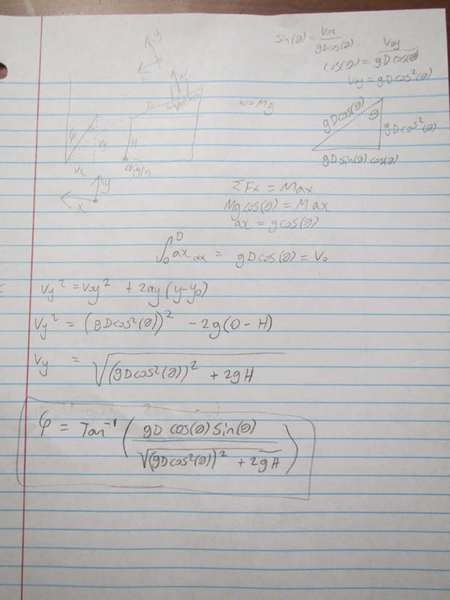 sin(θ) = Vox / gDcos(θ)
cos(θ) = Voy / gDcos(θ)
Voy = gDcos²(θ)
w=Mg
gDcos(θ)
θ
gDcos²(θ)
gDsin(θ)cos(θ)
H
y
x
ΣFx = Max
Mgcos(θ) = Max
ax = gcos(θ)
∫₀ᴰ ax dx = gDcos(θ) = V₀
Vy² = Voy² + 2ay(y-y₀)
Vy² = (gDcos²(θ))² - 2g(0-H)
Vy = √((gDcos²(θ))² + 2gH)
φ = Tan⁻¹ ( gD cos(θ) Sin(θ) / √((gDcos²(θ))² + 2gH) )